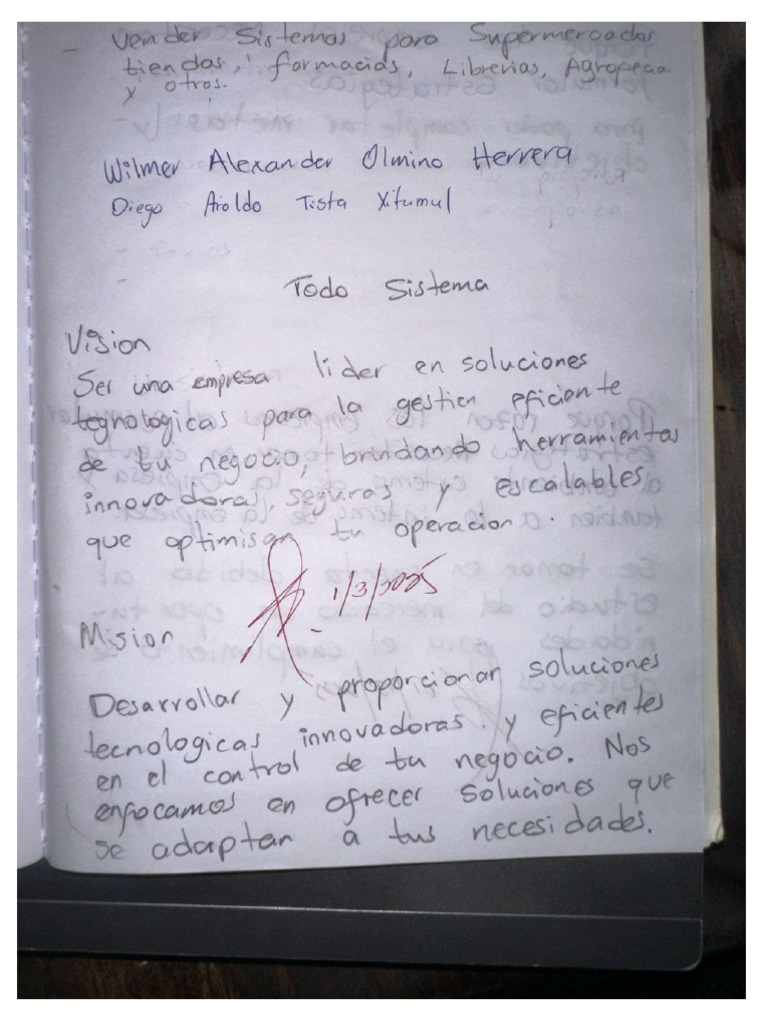 - vender Sistemas para Supermercados
tiendas, farmacias, Librerias, Agropecu.
y otros.
Wilmer Alexander Olmino Herrera
Diego Aroldo Tista Xitumul
Todo Sistema
Vision
Ser una empresa lider en soluciones
tegnologicas para la gestion eficiente
de tu negocio, brindando herramientas
innovadoras, seguras y escalables
que optimisan tu operacion.
1/3/2025
Mision
Desarrollar y proporcionar soluciones
tecnologicas innovadoras y eficientes
en el control de tu negocio. Nos
enfocamos en ofrecer soluciones que
se adaptan a tus necesidades.